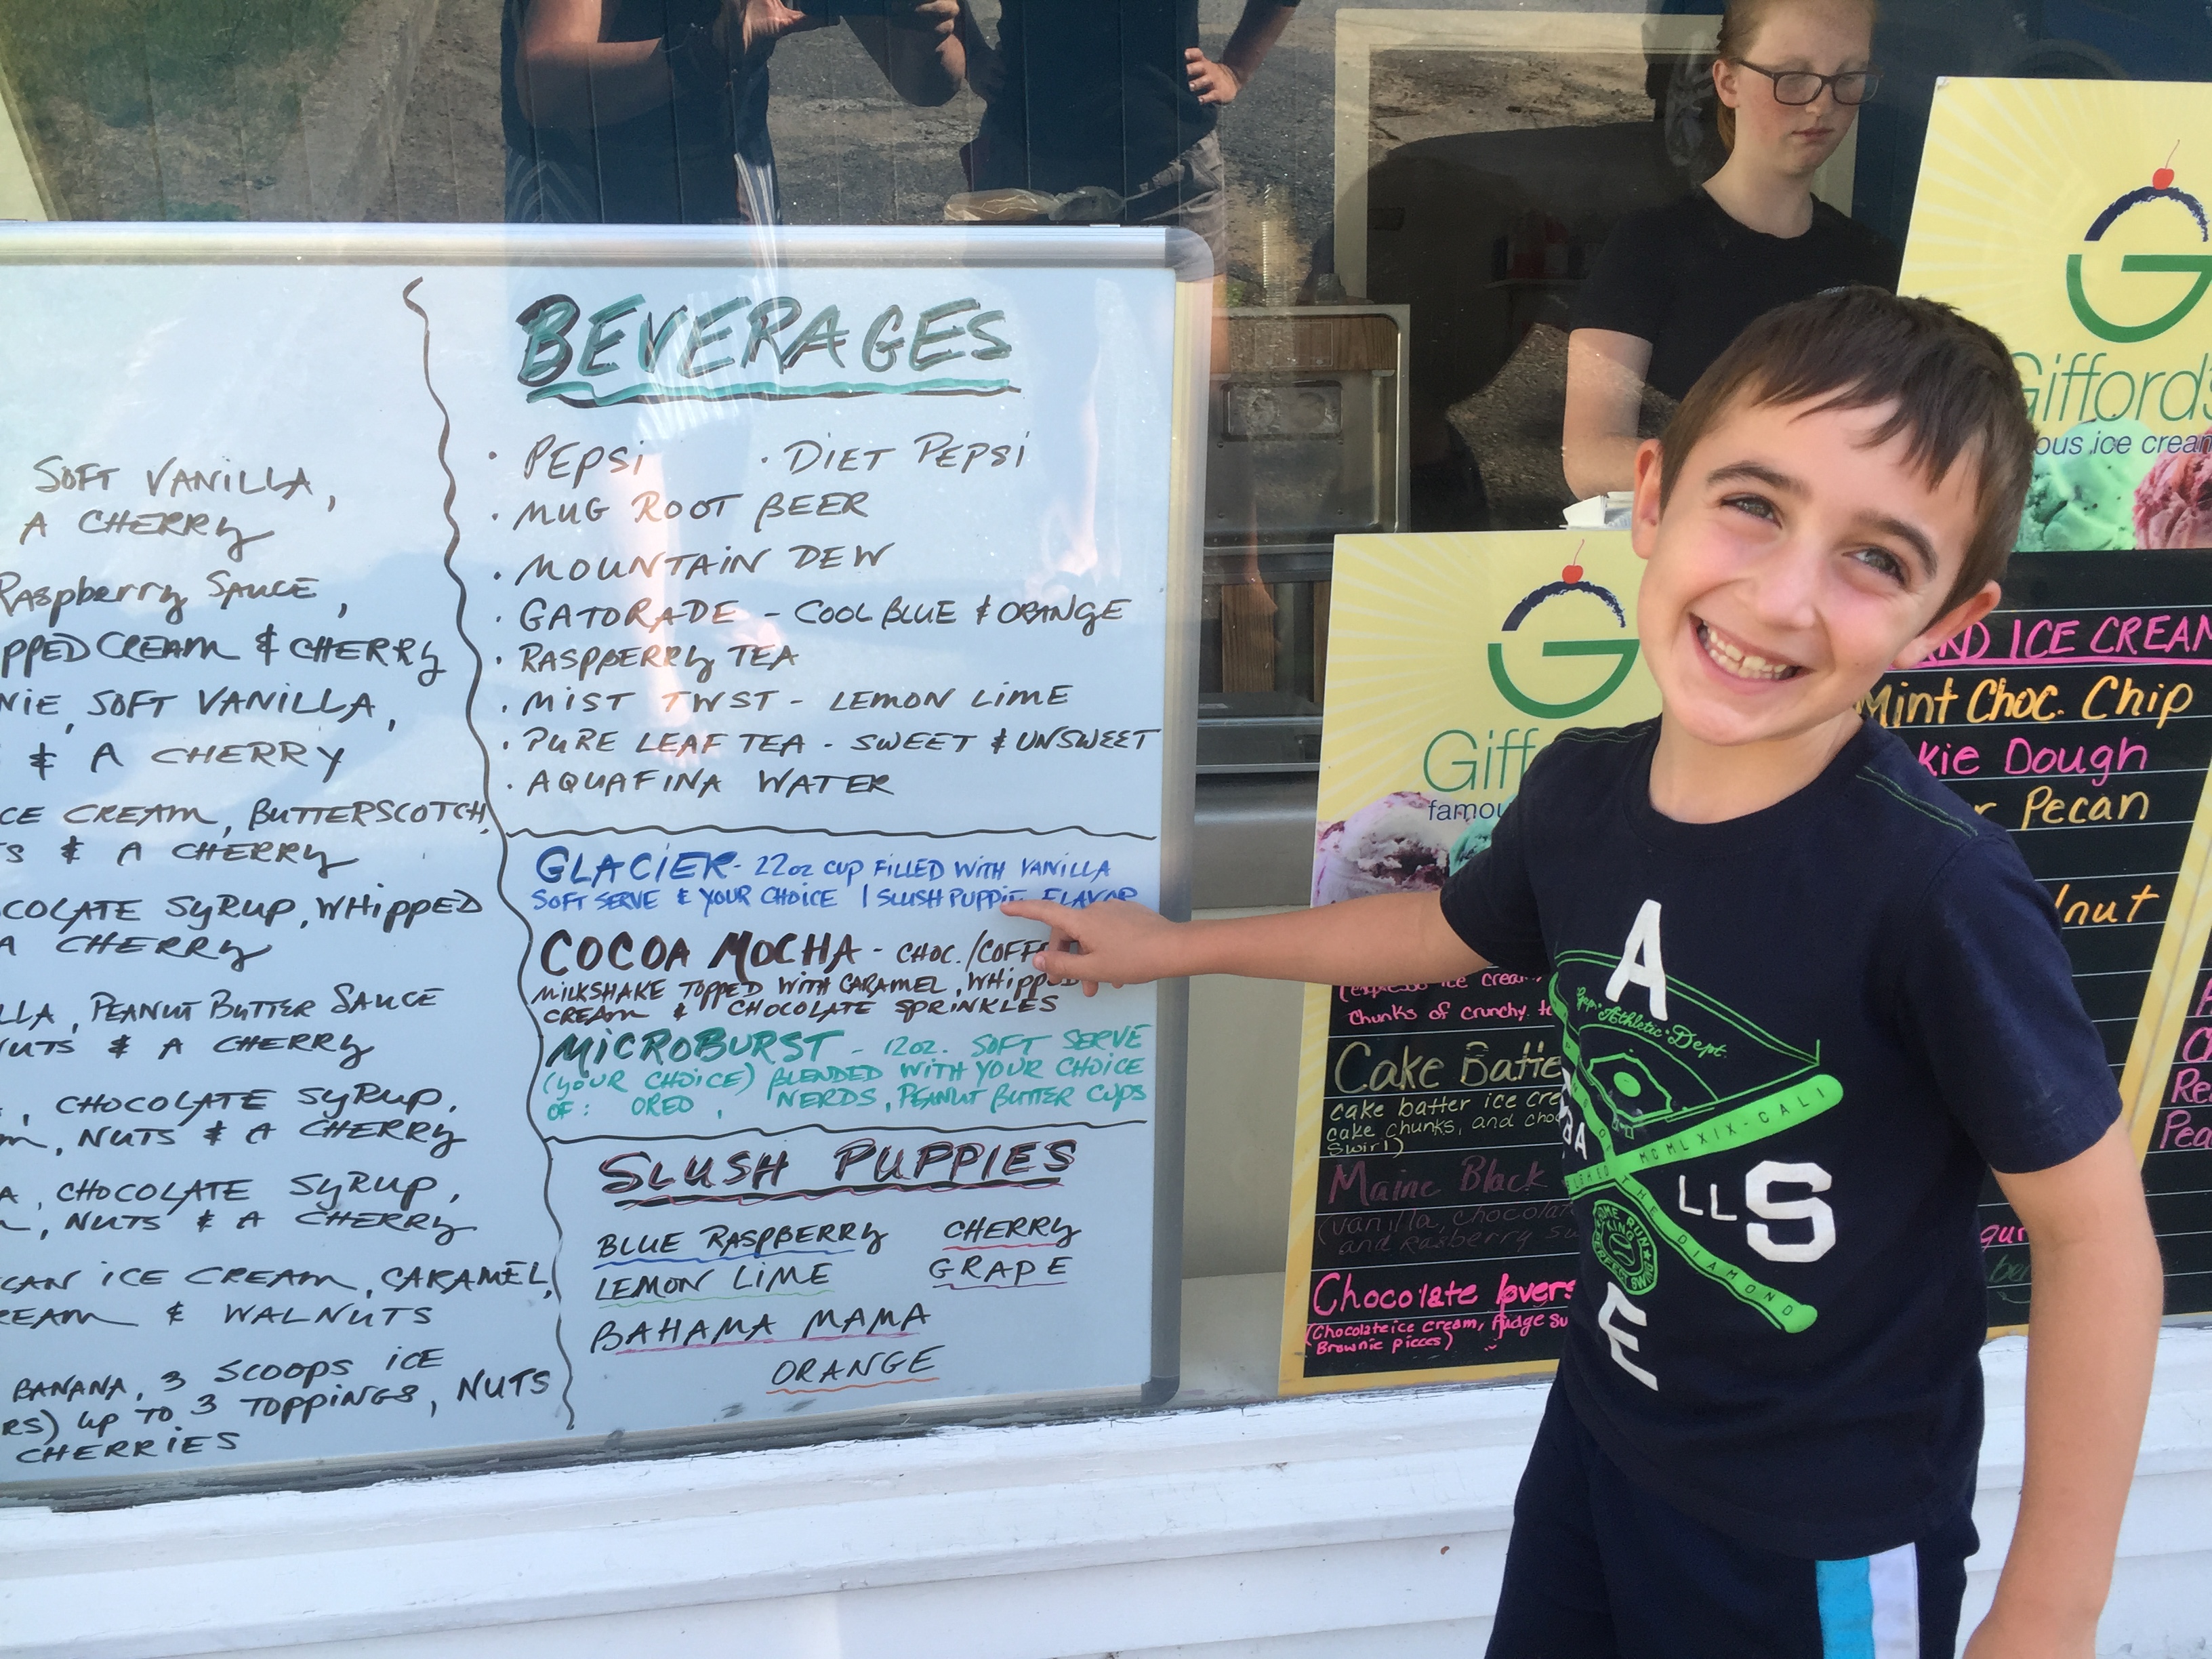 SOFT VANILLA,
A CHERRY
RASpberry SAUCE,
PPED CREAM & CHERRY
NIE, SOFT VANILLA,
& A CHERRY
CE CREAM, BUTTERSCOTCH,
TS & A CHERRY
COLATE SYRUP, WHIPPED
A CHERRY
LLA, PEANUT BUTTER SAUCE
NUTS & A CHERRY
, CHOCOLATE SYRUP,
, NUTS & A CHERRY
A, CHOCOLATE SYRUP,
, NUTS & A CHERRY
CAN ICE CREAM, CARAMEL,
REAM & WALNUTS
BANANA, 3 SCOOPS ICE
RS) UP TO 3 TOPPINGS, NUTS
CHERRIES
BEVERAGES
· PEPSI · DIET PEPSI
· MUG ROOT BEER
· MOUNTAIN DEW
· GATORADE - COOL BLUE & ORANGE
· RASPBERRY TEA
· MIST TWST - LEMON LIME
· PURE LEAF TEA - SWEET & UNSWEET
· AQUAFINA WATER
GLACIER - 22oz CUP FILLED WITH VANILLA
SOFT SERVE & YOUR CHOICE 1 SLUSH PUPPIE FLAVOR
COCOA MOCHA - CHOC./COFF
MILKSHAKE TOPPED WITH CARAMEL, WHIPPED
CREAM & CHOCOLATE SPRINKLES
MICROBURST - 12oz. SOFT SERVE
(YOUR CHOICE) BLENDED WITH YOUR CHOICE
OF: OREO, NERDS, PEANUT BUTTER CUPS
SLUSH PUPPIES
BLUE RASPBERRY CHERRY
LEMON LIME GRAPE
BAHAMA MAMA
ORANGE
G
Giff
famou
chunks of crunchy
Cake Batte
cake batter ice cre
cake chunks, and cho
swirl)
Maine Black
(vanilla, chocolat
and Rasberry Su
Chocolate lovers
(Chocolate ice cream, fudge su
Brownie pieces)
G
Gifford's
ous ice cream
ICE CREAM
Mint Choc. Chip
kie Dough
Pecan
lnut
Pea
A
Athletic Dept.
MCMLXIX-CALI
THE DIAMOND
LLS
E